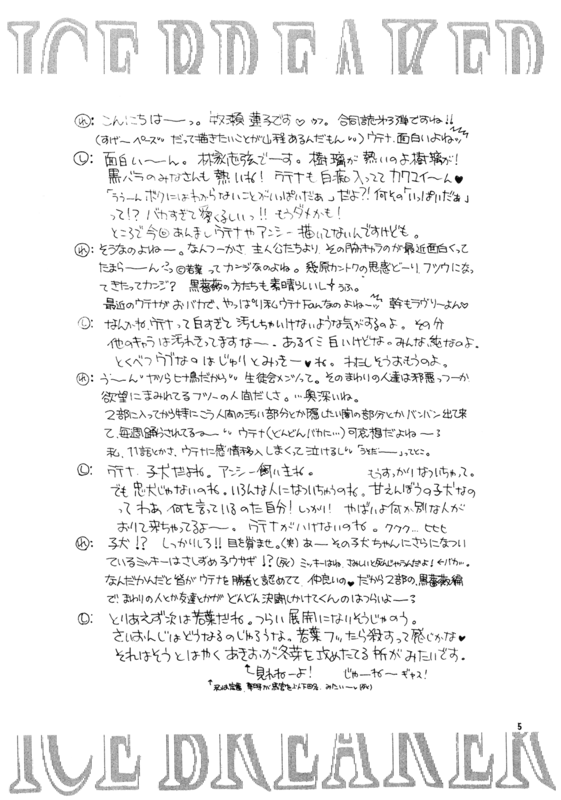 ICE BREAKER
れ: こんにちはーっ。 牧瀬 蓮子です♡
(すげーペース だって描きたいことが山程あるんだもん) ウテナ、面白いよねッ
し: 面白いーん。 でーす。 樹璃が熱いのよ樹璃が!
黒バラのみなさんも熱いね! ウテナも白痴入っててカワユイーん♥
「ううーんボクにはわからないことがいっぱいだぁ」だよ?! 何その「いっぱいだぁ」
って!? バカすぎて愛くるしいっ!! もうダメかも!
ところで今回あんましウテナやアンシー描いてないんですけども。
れ: そうなのよねー。なんつーかさ、主人公たちより、その脇キャラのが最近面白くって
たまらーん。 若葉ってカンジなのよね。 幾原カントクの思惑どーり、フツウになっ
てきたってカンジ? 黒薔薇の方たちも素晴らしいし うふ。
最近のウテナがおバカで、やっぱり私ウテナFanなのよねーッ 幹もラヴリーよん♡
し: なんかね、ウテナって白すぎて汚しちゃいけないような気がするのよ。その分
他のキャラは汚れきってますなー。 あるイミ白いけどな。みんな、純なのよ。
とくべつウブなのはじゅりとみっきーね。 わたしそうおもうのよ。
れ: うーん 七実だから 生徒会メンツって。そのまわりの人達は邪悪っつーか
欲望にまみれてるフツーの人間だしさ。…奥深いね。
2部に入ってから特にこう人間の汚い部分とか隠したい闇の部分とかバンバン出て来
て、毎週踊らされてるー ウテナ(どんどんバカに…)可哀想だよねー
私、11話とかさ、ウテナに感情移入しまくって泣けるし ってとこ。
し: ウテナ、子犬だよね。アンシー飼い主ね。 もうすっかりなついちゃって。
でも忠犬じゃないのね。いろんな人になついちゃうのね。甘えんぼうの子犬なの
ってわあ何を言っているのだ自分! しっかり! やばいよ何か別な人が
おりて来ちゃってるよー。 ウテナがいけないのね。 ククク… ヒヒヒ
れ: 子犬!? しっかりしろ!! 目を覚ませ。(笑) あー その子犬ちゃんにさらになつい
ているミッキーはさしずめ子ウサギ!?(死) ミッキーはね、さみしいと死んじゃうんだよ! ←バカ
なんだかんだと皆がウテナを勝者と認めてて、仲良いの♥ だから2部の、黒薔薇編
で、まわりの人とか友達とかがどんどん決闘しかけてくんのはつらいよー
し: とりあえず次は若葉だね。つらい展開になりそうじゃのう。
さいおんじはどうなるのじゃろうな。若葉フッたら殺すって感じかな♥
それはそうとはやくあきおが冬芽を攻めたてる所がみたいです。
↑見れねーよ! じゃーねー ギャス!
5
ICE BREAKER